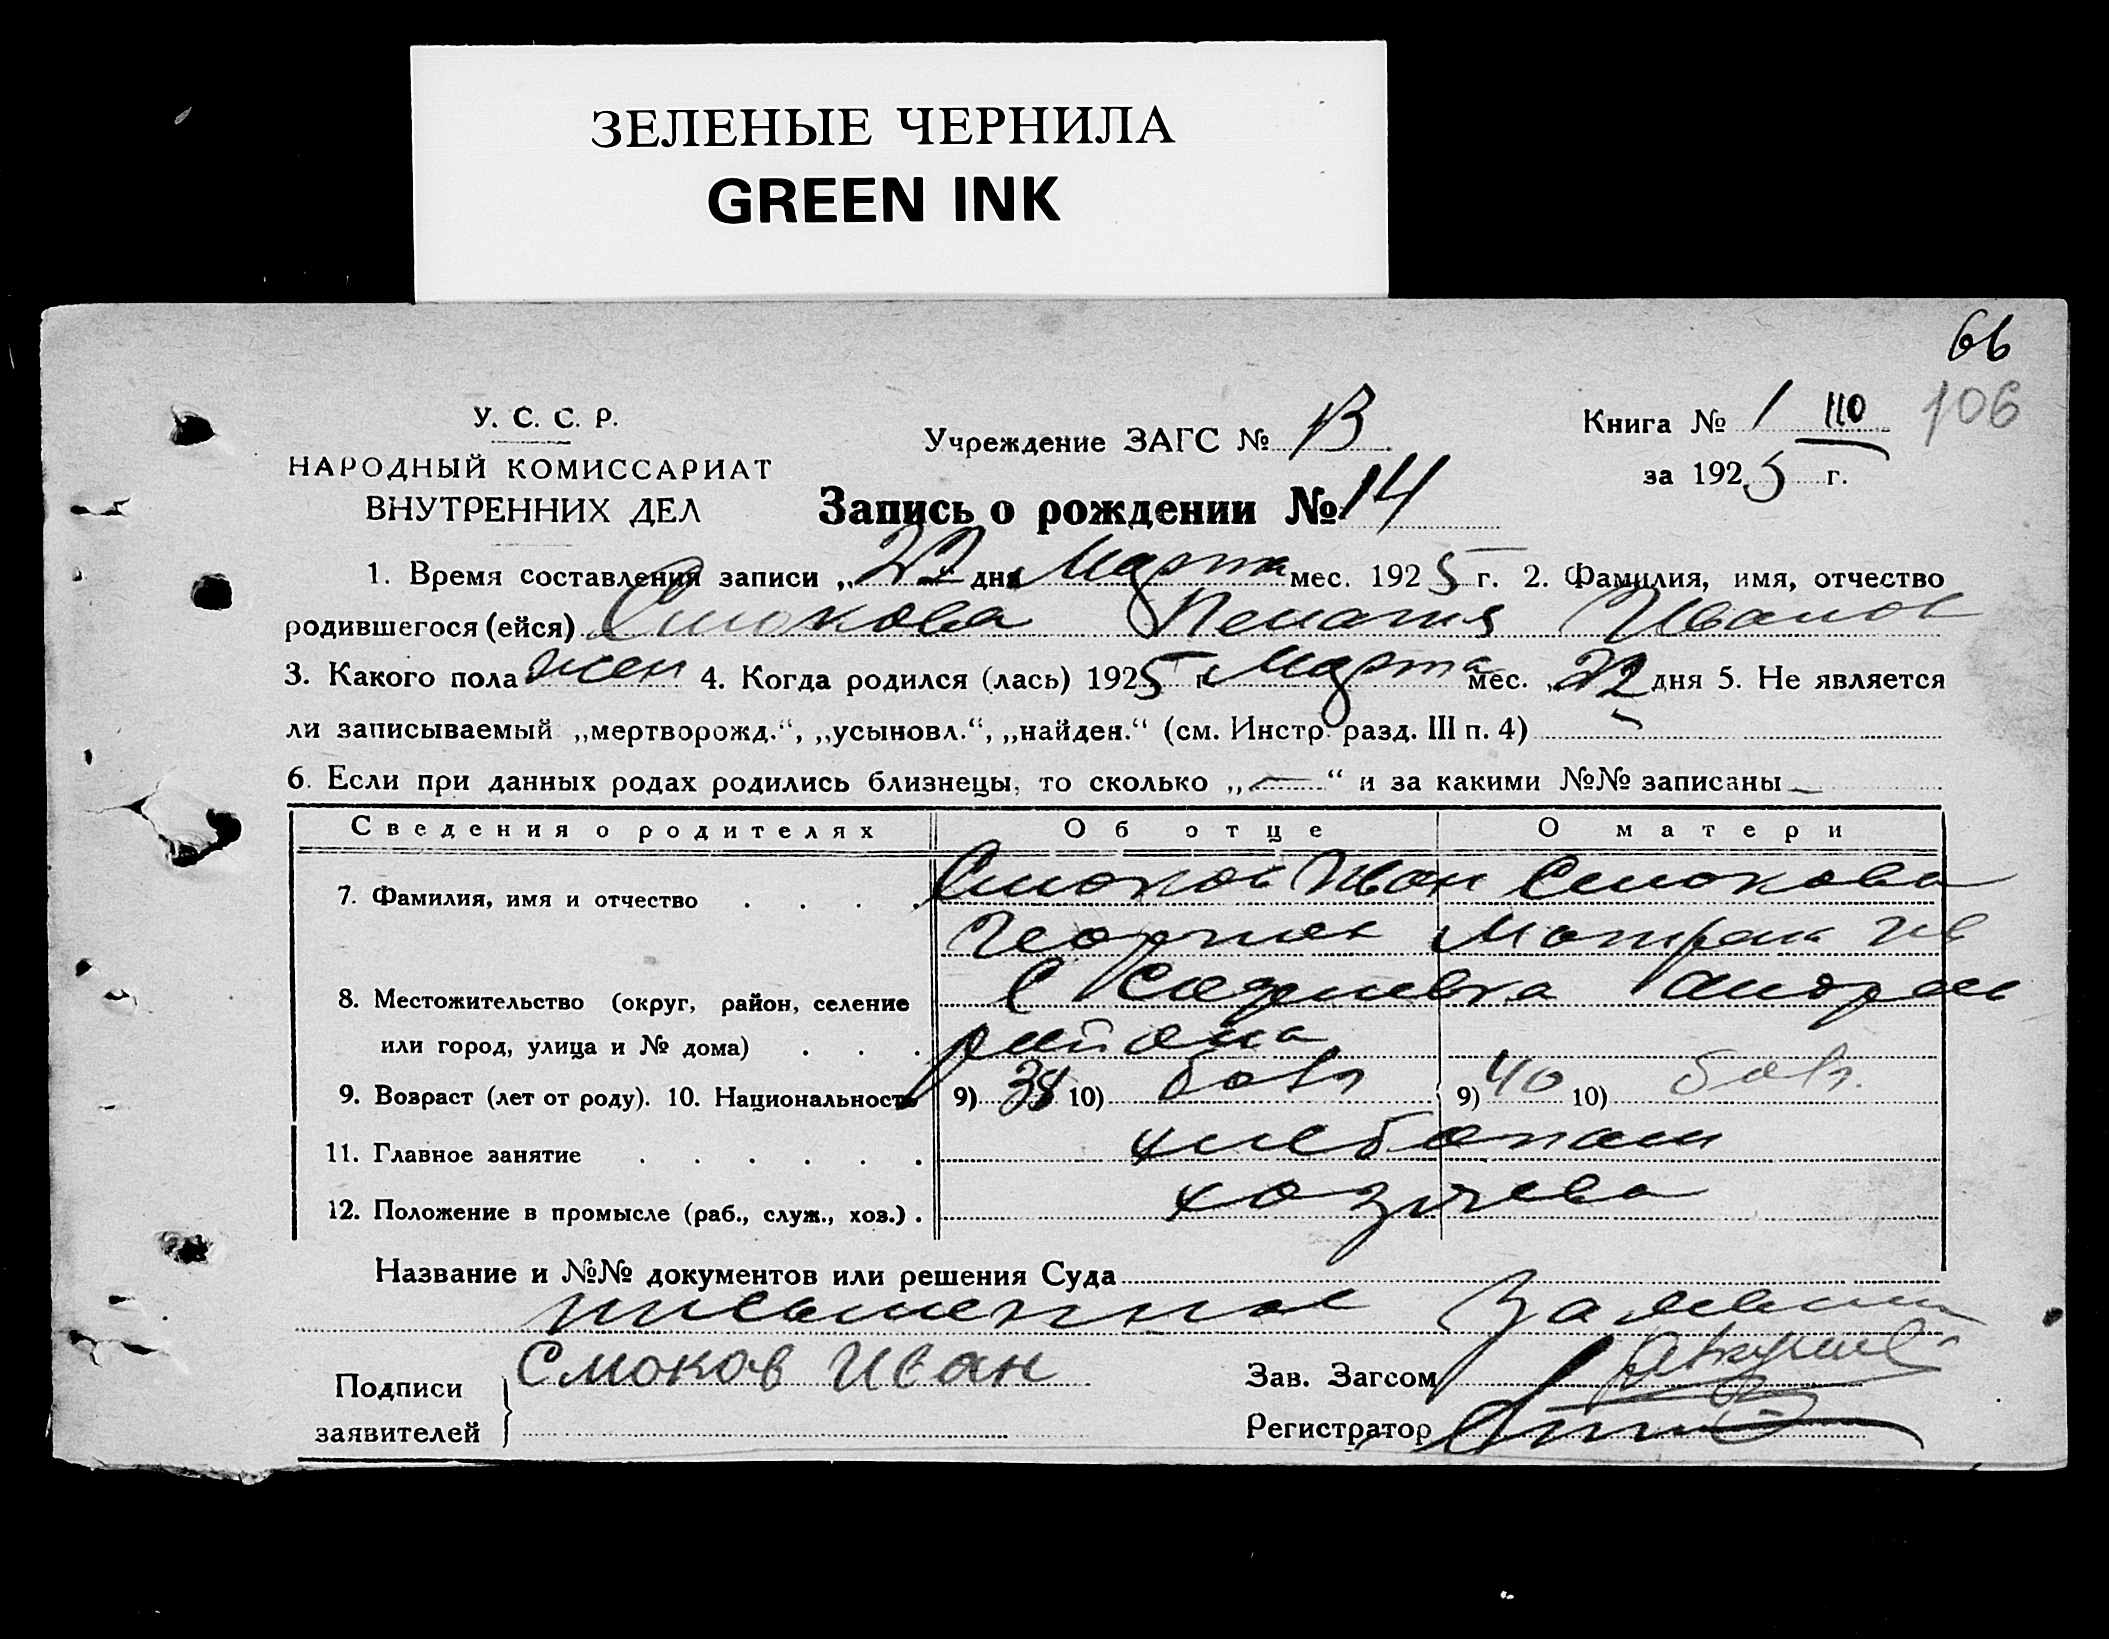 ЗЕЛЕНЫЕ ЧЕРНИЛА
GREEN INK
66
106
У. С. С. Р.
НАРОДНЫЙ КОМИССАРИАТ
ВНУТРЕННИХ ДЕЛ
Учреждение ЗАГС №
Книга № 1 110
за 1925 г.
Запись о рождении № 14
1. Время составления записи „22“ дня Марта мес. 1925 г. 2. Фамилия, имя, отчество
родившегося (ейся) Смокова Пелагия Иванов
3. Какого пола жен 4. Когда родился (лась) 1925 г Марта мес. „22 дня 5. Не является
ли записываемый „мертворожд.“, „усыновл.“, „найден.“ (см. Инстр. разд. III п. 4)
6. Если при данных родах родились близнецы, то сколько „—“ и за какими №№ записаны —
Сведения о родителях Об отце О матери
7. Фамилия, имя и отчество . . . . Смоков Иван Смокова
Георгиев Матрена Ив
8. Местожительство (округ, район, селение С Андреев
или город, улица и № дома) . . . района
9. Возраст (лет от роду). 10. Национальность 9) 38 10) болг 9) 40 10) болг.
11. Главное занятие . . . . . . хлебопаш
12. Положение в промысле (раб., служ., хоз.) . хозяева
Название и №№ документов или решения Суда
письменное заявлени
Подписи
заявителей
Смоков Иван
Зав. Загсом
Регистратор